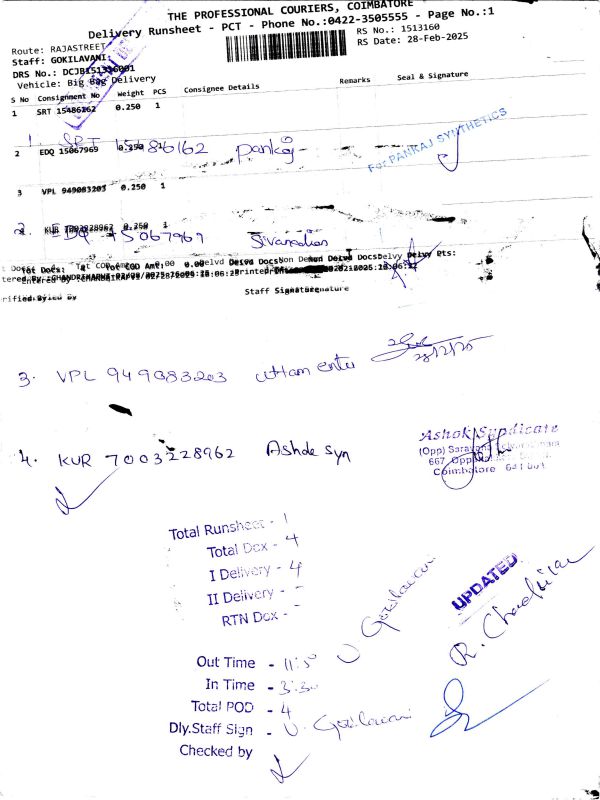 THE PROFESSIONAL COURIERS, COIMBATORE
Delivery Runsheet - PCT - Phone No.:0422-3505555 - Page No.:1
Route: RAJASTREET
RS No.: 1513160
Staff: GOKILAVANI
RS Date: 28-Feb-2025
DRS No.: DCJB151336001
Vehicle: Big Bag Delivery
S No Consignment No Weight PCS Consignee Details Remarks Seal & Signature
1 SRT 15486262 0.250 1
1. SRT 15486162 Pankaj
For PANKAJ SYNTHETICS
2 EDQ 15067969 0.250 1
3 VPL 949083203 0.250 1
EDQ 15067969 Sivanadian
Tot Docs: 4 Tot COD Amt: 0.00 Delvd Docs: Non Delvd Docs: Delvy Pts:
Staff Signature
3. VPL 949083203 Uttam enter
28/2/25
4. KUR 7003228962 Ashok Syn
Ashok Syndicate
(Opp)
667, Opp
Coimbatore 641 001
Total Runsheet - 1
Total Dox - 4
I Delivery - 4
II Delivery - -
RTN Dox - -
UPDATED
V Gokilavani
R. Chandrika
Out Time - 11.50
In Time - 3.30
Total POD - 4
Dly.Staff Sign - V. Gokilavani
Checked by